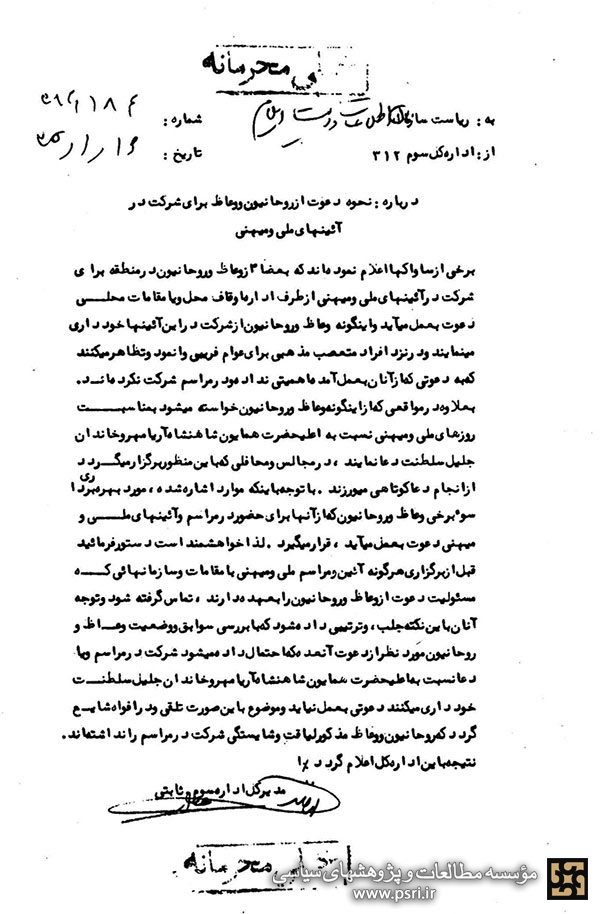 خیلی محرمانه
به: ریاست سازمان اطلاعات و امنیت
شماره:
از: اداره کل سوم ۳۱۲
تاریخ:
درباره: نحوه دعوت از روحانیون و وعاظ برای شرکت در
آئینهای ملی و میهنی
برخی از ساواکها اعلام نموده اند که بعضا" از وعاظ و روحانیون در منطقه برای
شرکت در آئینهای ملی و میهنی از طرف اداره اوقاف محل و یا مقامات محلی
دعوت بعمل میآید و اینگونه وعاظ و روحانیون از شرکت در این آئینها خودداری
مینمایند و در نزد افراد متعصب مذهبی برای عوام فریبی وانمود و تظاهر میکنند
که به دعوتی که از آنان بعمل آمده اهمیتی نداده و در مراسم شرکت نکرده اند.
بعلاوه در مواقعی که از اینگونه وعاظ و روحانیون خواسته میشود بمناسبت
روزهای ملی و میهنی نسبت به اعلیحضرت همایون شاهنشاه آریامهر و خاندان
جلیل سلطنت دعا نمایند، در مجالس و محافلی که باین منظور برگزار میگردد
از انجام دعا کوتاهی میورزند. با توجه باینکه موارد اشاره شده، مورد بهره برداری
سوء برخی وعاظ و روحانیون که از آنها برای حضور در مراسم و آئینهای ملی و
میهنی دعوت بعمل میآید، قرار میگیرد. لذا خواهشمند است دستور فرمائید
قبل از برگزاری هرگونه آئین و مراسم ملی و میهنی با مقامات و سازمانهائی که
مسئولیت دعوت از وعاظ و روحانیون را بعهده دارند، تماس گرفته شود و توجه
آنان باین نکته جلب، و ترتیبی داده شود که با بررسی سوابق و وضعیت وعاظ و
روحانیون مورد نظر از دعوت آنعده که احتمال داده میشود شرکت در مراسم و یا
دعا نسبت به اعلیحضرت همایون شاهنشاه آریامهر و خاندان جلیل سلطنت
خودداری میکنند دعوتی بعمل نیاید و موضوع باین صورت تلقی و در افواه شایع
گردد که روحانیون و وعاظ مذکور لیاقت و شایستگی شرکت در مراسم را نداشته اند.
نتیجه باین اداره کل اعلام گردد
مدیرکل اداره سوم ثابتی
خیلی محرمانه
مؤسسه مطالعات و پژوهشهای سیاسی
www.psri.ir